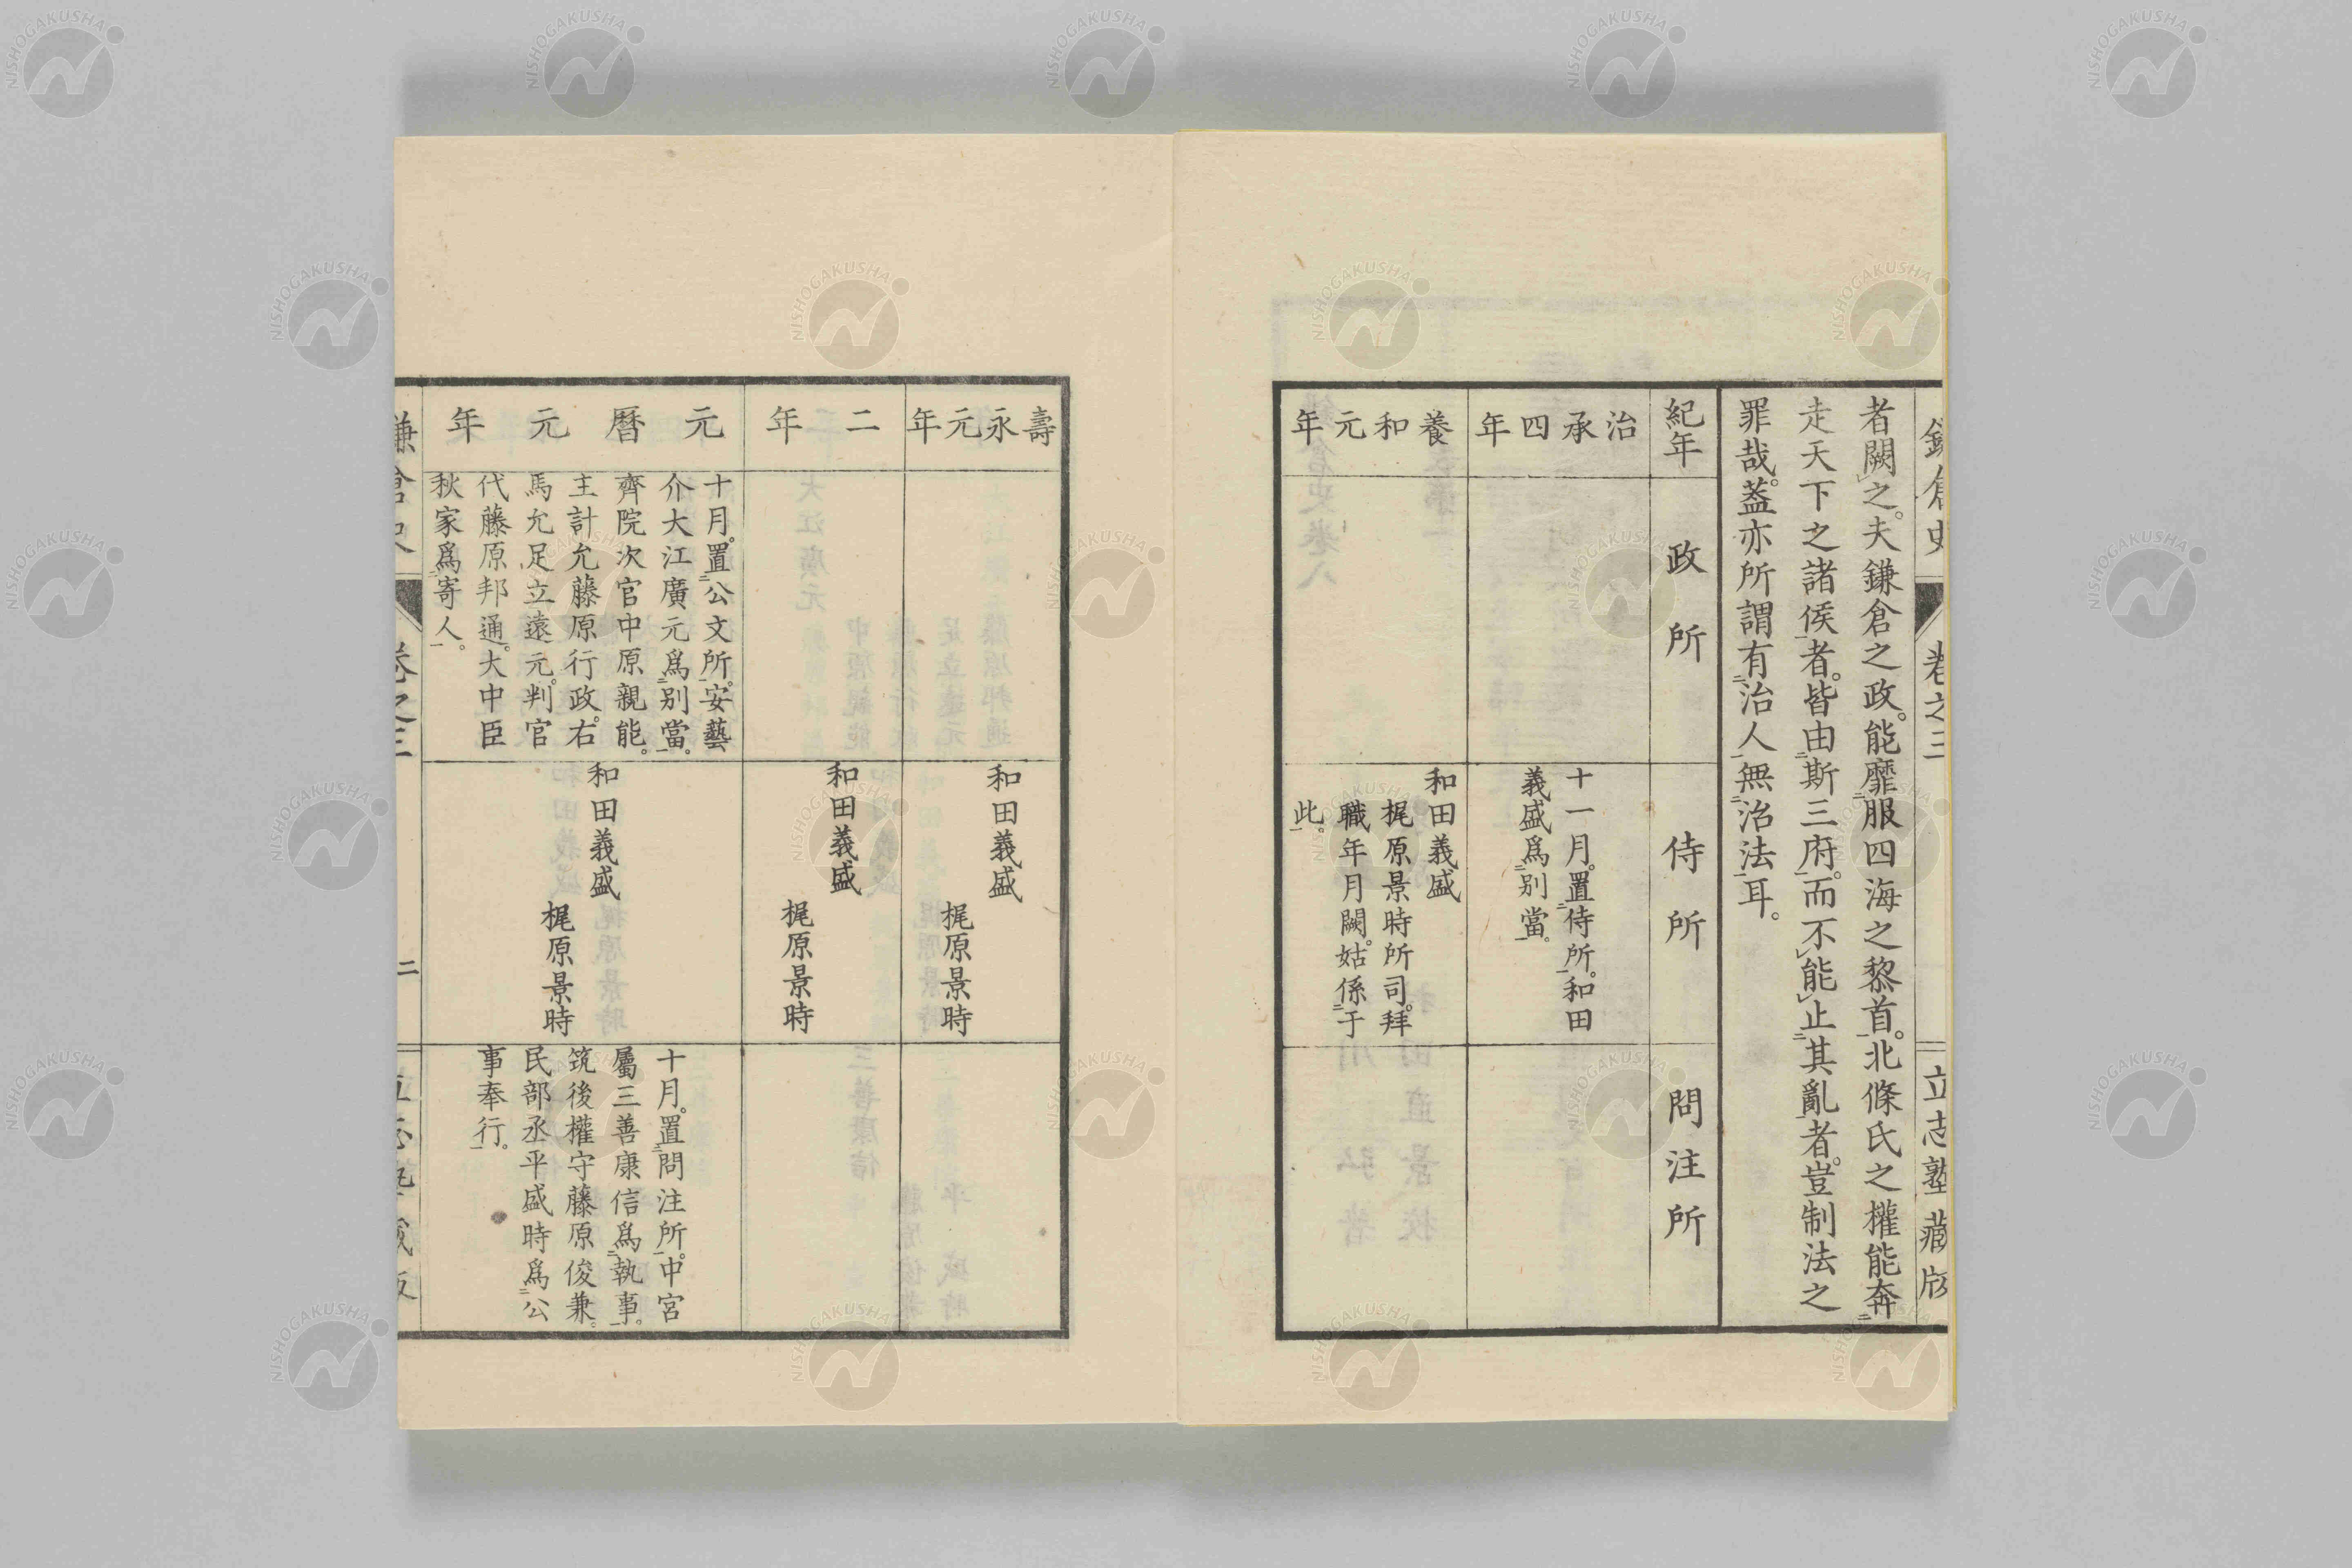 鎌倉史 卷之三 立志塾藏版
者闕之。夫鎌倉之政。能靡服四海之黎首。北條氏之權能奔
走天下之諸侯者。皆由斯三府。而不能止其亂者。豈制法之
罪哉。蓋亦所謂有治人無治法耳。
紀年
政所
侍所
問注所
治承四年
十一月。置侍所。和田
義盛爲別當。
養和元年
和田義盛
梶原景時所司。拜
職年月闕。姑係于
此。
壽永元年
和田義盛
梶原景時
二年
和田義盛
梶原景時
元曆元年
十月。置公文所。安藝
介大江廣元爲別當。
齊院次官中原親能。
主計允藤原行政。右
馬允足立遠元。判官
代藤原邦通。大中臣
秋家爲寄人。
和田義盛
梶原景時
十月。置問注所。中宮
屬三善康信爲執事。
筑後權守藤原俊兼。
民部丞平盛時爲公
事奉行。
鎌倉史 卷之三 二 立志塾藏版
NISHOGAKUSHA